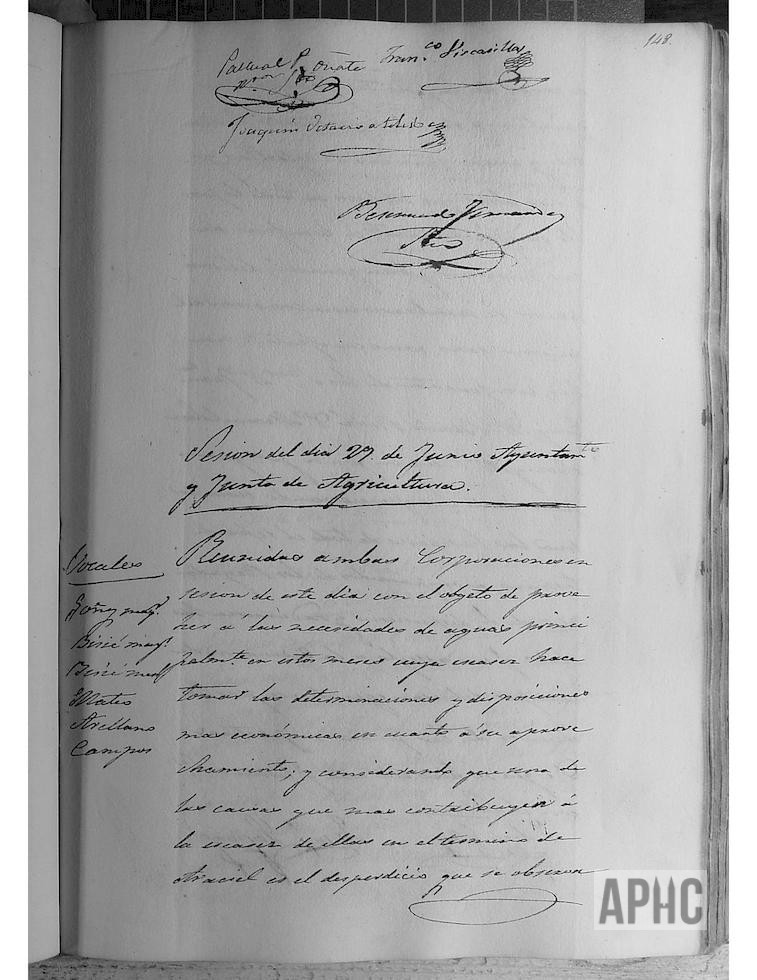 148.
Pascual P. Oñate Fran.co
Joaquin
Fernandez
Sesion del dia 27. de Junio Ayuntamto
y Junta de Agricultura.
Vocales
Goñi may.r
Biñé may.r
Biñé
Mateo
Arellano
Campos
Reunidas ambas Corporaciones en
sesion de este dia con el objeto de prove
her á las necesidades de aguas princi
palmte. en estos meses cuya escasez hace
tomar las determinaciones y disposiciones
mas económicas en cuanto á su aprove
chamiento; y considerando que una de
las causas que mas contribuyen á
la escasez de ellas en el termino de
es el desperdicio que se observa
APHC